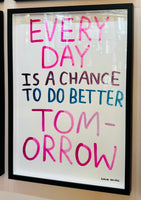 EVERY
DAY
IS A CHANCE
TO DO BETTER
TOM-
ORROW